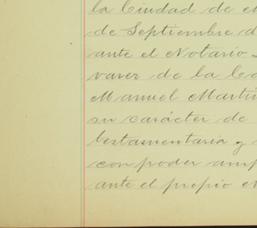 la Ciudad de M
de Septiembre d
ante el Notario
varez de la Ca
Manuel Martí
su carácter de
testamentaria y
con poder amp
ante el propio N